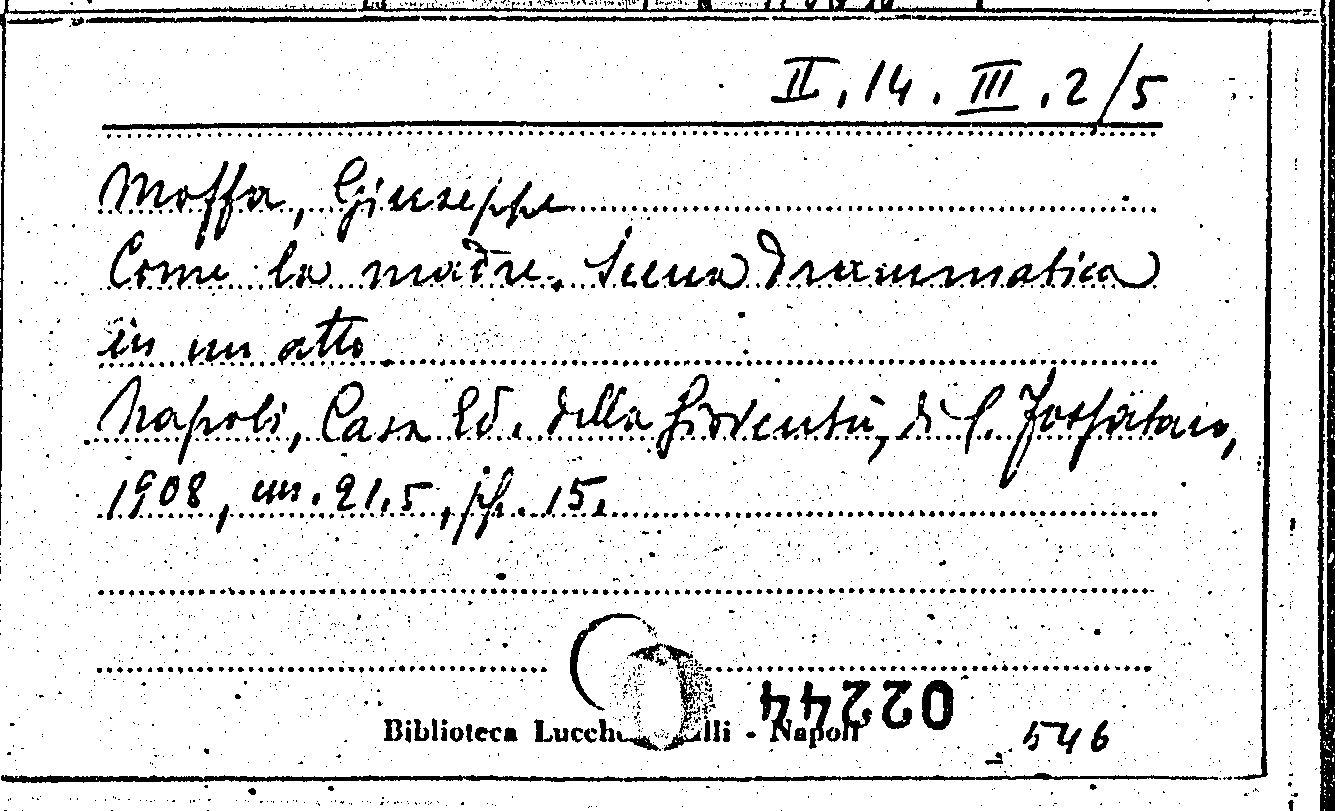 II.14.III.2/5
Moffa, Giuseppe
Come la madre. Scena drammatica
in un atto.
Napoli, Casa Ed. della Gioventù, di C.
1908, cm. 21.5, pp. 15.
02244
Biblioteca - Napoli
546